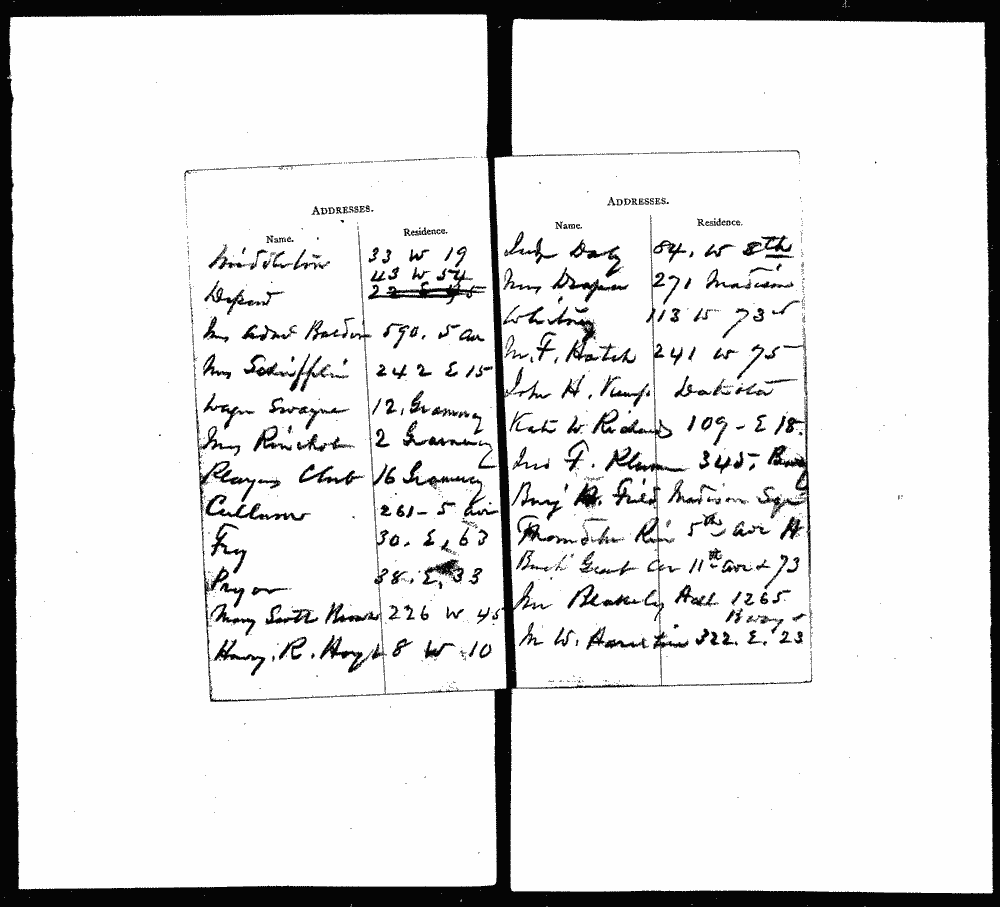 ADDRESSES.
Name. Residence.
Middleton 33 W 19
43 W 54
Depew 22 E 45
Mrs Baldwin 590. 5 av
Mrs Schiffelin 242 E 15
Wager Swayne 12. Gramercy
Mrs 2 Gramercy
Players Club 16 Gramercy
Cullum 261-5 av
Fry 30. E. 63
Pryor 38. E. 33
Mary Scott 226 W 45
Henry. R. Hoyt 8 W 10
ADDRESSES.
Name. Residence.
Judge Daly 84. W 8th
Mrs Draper 271 Madison
Whitney 113 W 73
F. Hatch 241 W 75
John H. Dakota
Kate W. Richards 109-E 18.
F. 345.
Field Madison Sqr
5th Ave H
Buck Grant Cor 11th av & 73
Mr Blakely 1265
Bway
M W. Hamilton 322. E. 23